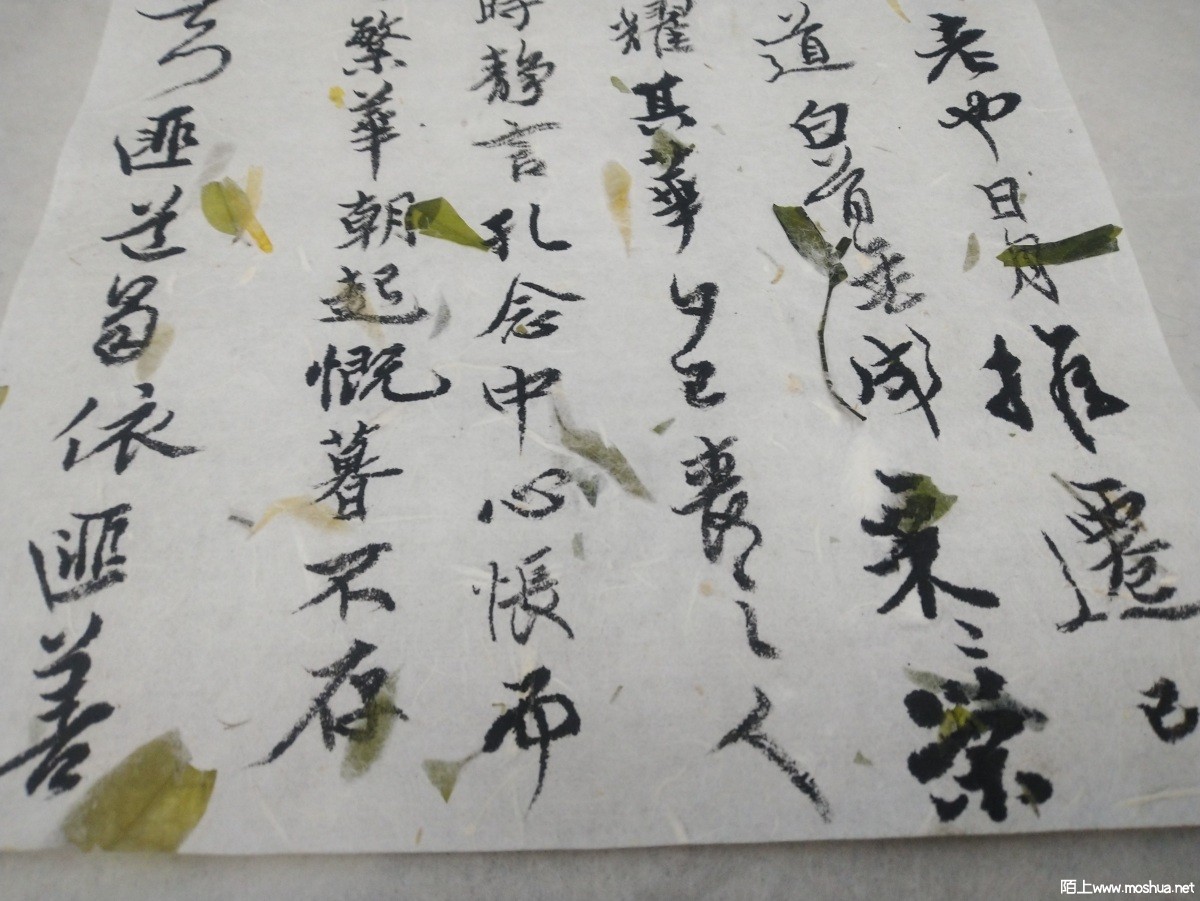 老也日月推遷已
道白首無成采〻榮
耀其華夕已喪之人
時靜言孔念中心悵而
繁華朝起慨暮不存
匪道曷依匪善
陌上www.moshua.net